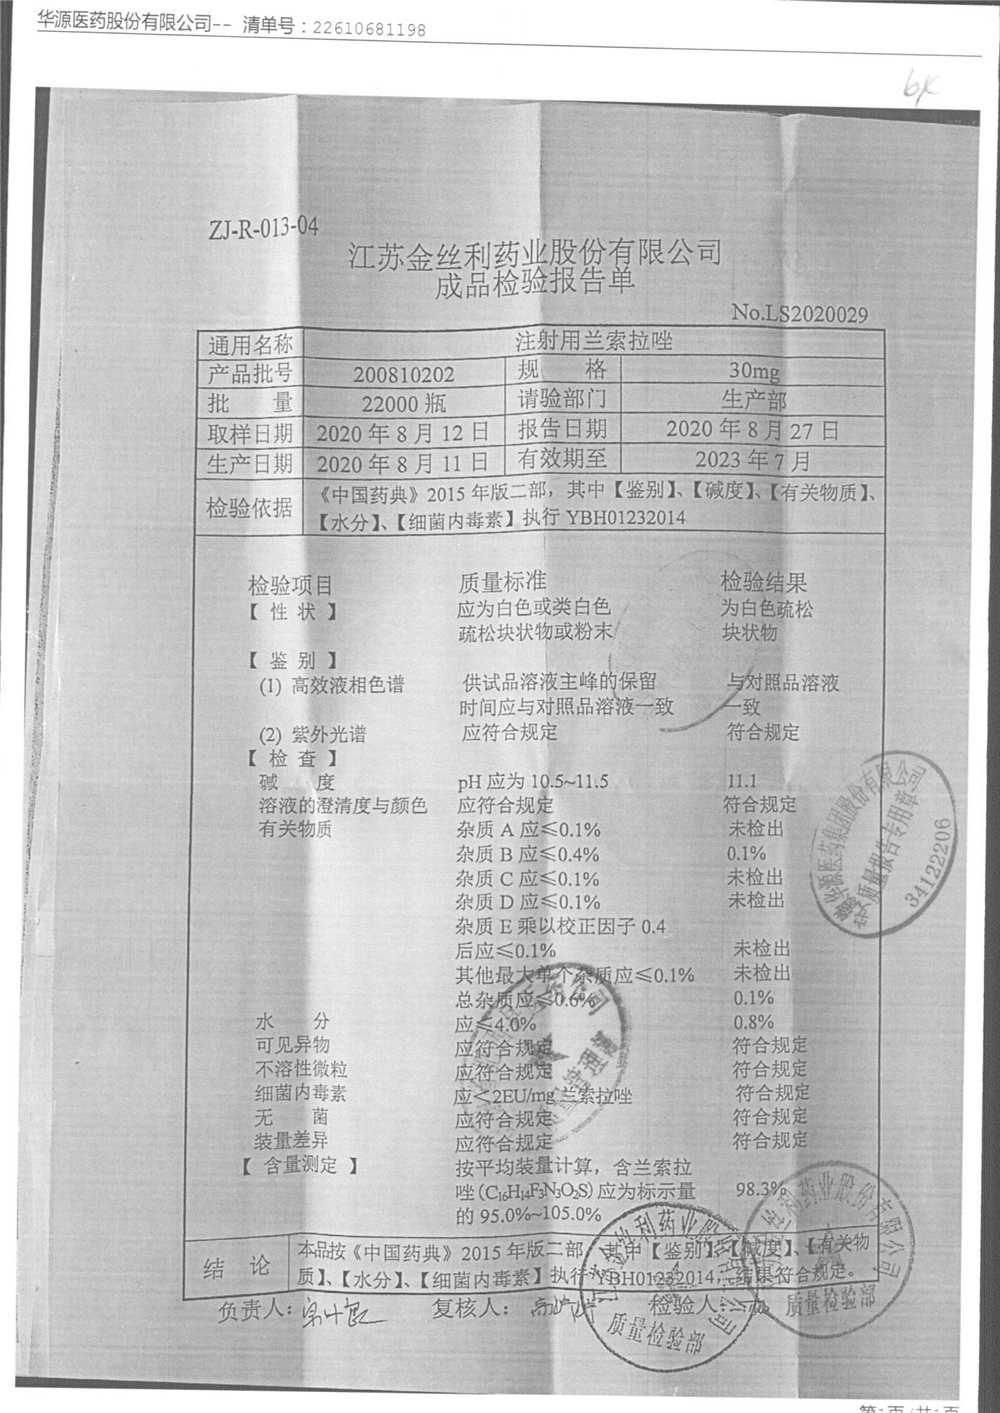 华源医药股份有限公司-- 清单号：22610681198
ZJ-R-013-04
江苏金丝利药业股份有限公司
成品检验报告单
No.LS2020029
通用名称 注射用兰索拉唑
产品批号 200810202 规 格 30mg
批 量 22000 瓶 请验部门 生产部
取样日期 2020 年 8 月 12 日 报告日期 2020 年 8 月 27 日
生产日期 2020 年 8 月 11 日 有效期至 2023 年 7 月
检验依据 《中国药典》2015 年版二部，其中【鉴别】、【碱度】、【有关物质】、
【水分】、【细菌内毒素】执行 YBH01232014
检验项目 质量标准 检验结果
【 性 状 】 应为白色或类白色 为白色疏松
疏松块状物或粉末 块状物
【 鉴 别 】
(1) 高效液相色谱 供试品溶液主峰的保留 与对照品溶液
时间应与对照品溶液一致 一致
(2) 紫外光谱 应符合规定 符合规定
【 检 查 】
碱 度 pH 应为 10.5~11.5 11.1
溶液的澄清度与颜色 应符合规定 符合规定
有关物质 杂质 A 应≤0.1% 未检出
杂质 B 应≤0.4% 0.1%
杂质 C 应≤0.1% 未检出
杂质 D 应≤0.1% 未检出
杂质 E 乘以校正因子 0.4
后应≤0.1% 未检出
其他最大单个杂质应≤0.1% 未检出
总杂质应≤0.6% 0.1%
水 分 应≤4.0% 0.8%
可见异物 应符合规定 符合规定
不溶性微粒 应符合规定 符合规定
细菌内毒素 应＜2EU/mg 兰索拉唑 符合规定
无 菌 应符合规定 符合规定
装量差异 应符合规定 符合规定
【 含量测定 】 按平均装量计算，含兰索拉
唑(C16H14F3N3O2S)应为标示量 98.3%
的 95.0%~105.0%
结 论 本品按《中国药典》2015 年版二部，其中【鉴别】、【碱度】、【有关物
质】、【水分】、【细菌内毒素】执行 YBH01232014，结果符合规定。
负责人： 复核人： 检验人：
质量检验部
质量检验部
34122206